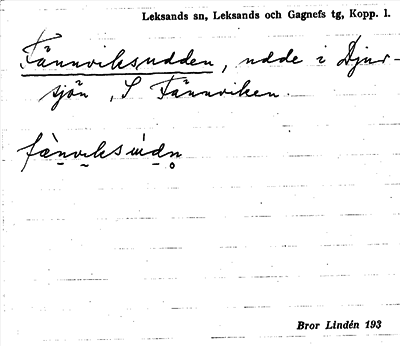 Leksands sn, Leksands och Gagnefs tg, Kopp. l.
Fännviksudden, udde i Djur-
sjön, S Fännviken.
fæ̀nviksùdn̥
Bror Lindén 193